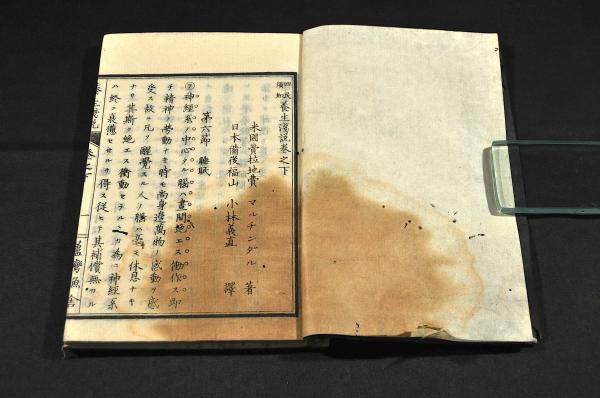 四民須知
養生淺説巻之下
米國費拉地費 マルチンダル 著
日本備後福山 小林義直 譯
第六節 睡眠
神經系ノ中心タル腦ハ晝間絶エス働作ス即
チ精神ノ勞動ナキ時モ尚身邊萬物ノ感動ヲ感
受ス故ニ凡ソ醒覺スル人ノ腦ハ毫ス休息ナキ
ナリ其斯ク絶エス衝動セラルヽカ為ニ神經系
ハ終ニ衰憊セサルヲ得ス従テ其補償無カル